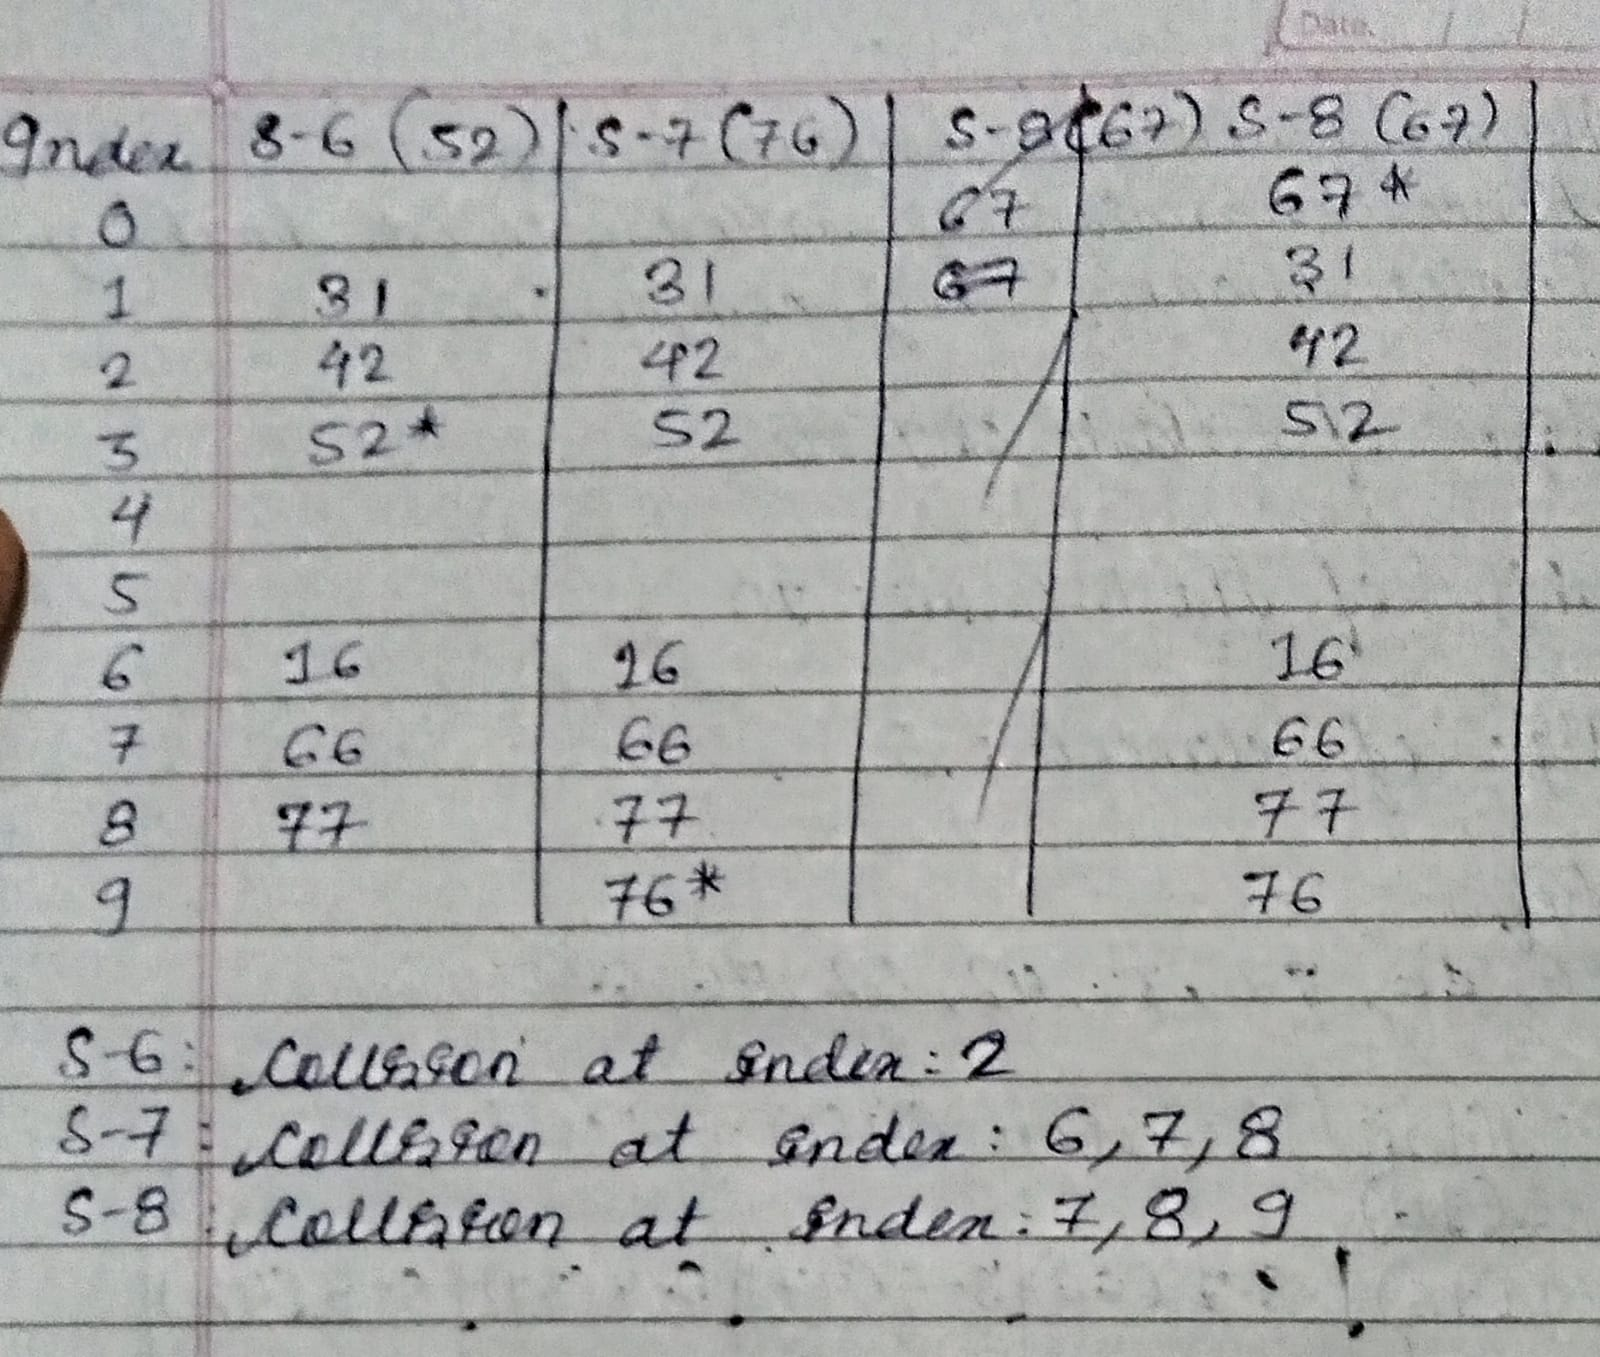 Date.
Index S-6 (52) S-7 (76) S-8 (67) S-8 (67)
0 67 67*
1 31 31 67 31
2 42 42 42
3 52* 52 52
4
5
6 16 16 16
7 66 66 66
8 77 77 77
9 76* 76
S-6: Collision at index: 2
S-7: Collision at index: 6, 7, 8
S-8: Collision at index: 7, 8, 9